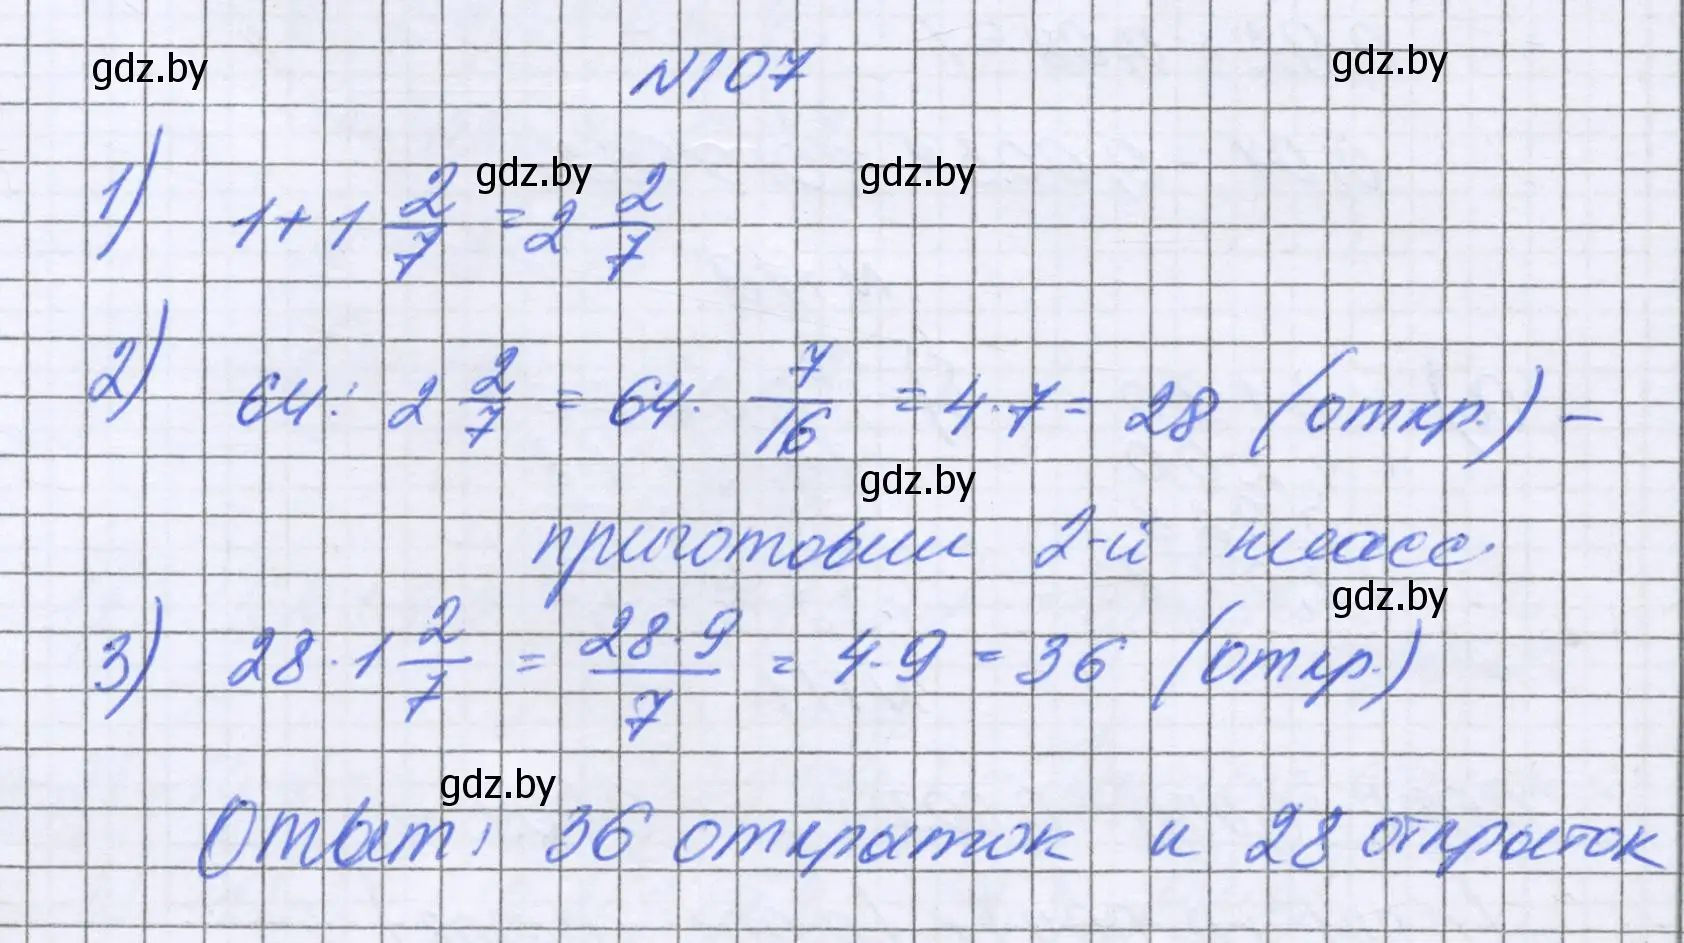 gdz.by №107 gdz.by
1) 1 + 1 2/7 = 2 2/7
gdz.by gdz.by
2) 64 : 2 2/7 = 64 · 7/16 = 4 · 7 = 28 (откр.) –
gdz.by
приготовил 2-й класс
gdz.by
3) 28 · 1 2/7 = 28 · 9/7 = 4 · 9 = 36 (откр.)
gdz.by
Ответ: 36 открыток и 28 открыток